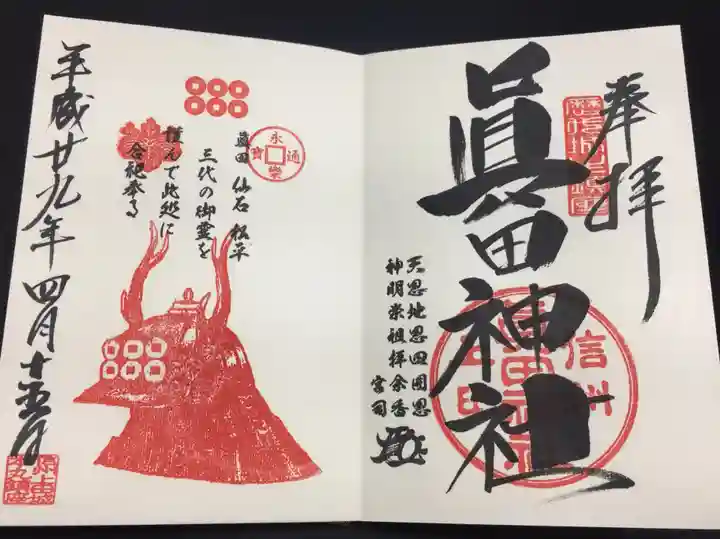 奉拝
眞田神社
信州
天恩地恩四囲恩
神明崇祖拝余香
宮司
永樂通寳
眞田 仙石 松平
三代の御霊を
謹んで此処に
合祀奉る
平成廿九年四月十五日